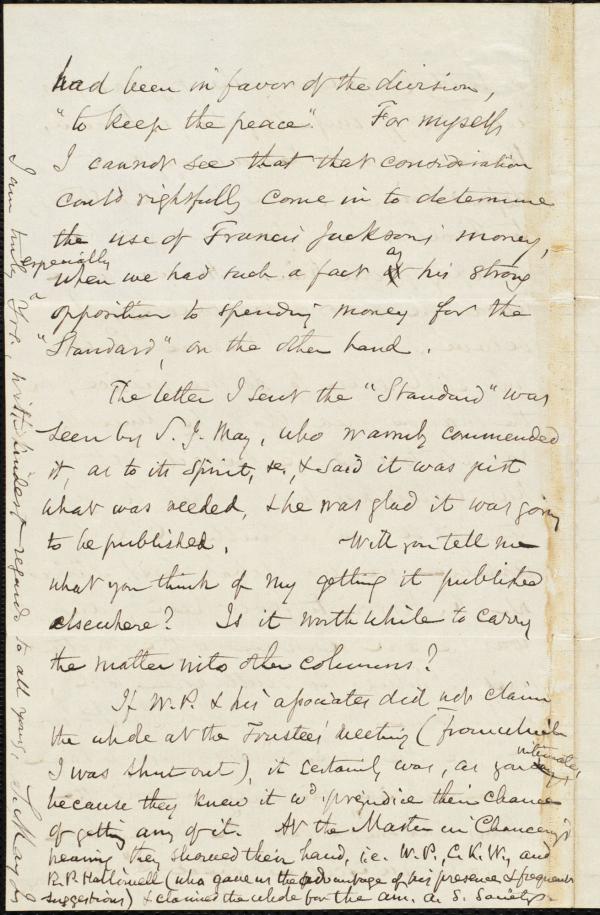 had been in favor of the division,
"to keep the peace". For myself,
I cannot see that that consideration
could rightfully come in to determine
the use of Francis Jackson's money,
especially
when we had such a fact as his strong
opposition to spending money for the
"Standard", on the other hand.
The letter I sent the "Standard" was
seen by S. J. May, who warmly commended
it, as to its spirit, &c, & said it was just
what was needed, & he was glad it was going
to be published. Will you tell me
what you think of my getting it published
elsewhere? Is it worth while to carry
the matter into other columns?
If W.P. & his associates did not claim
the whole at the Trustees' meeting (from which
I was shut out), it certainly was, as you intimate,
because they knew it wd. prejudice their chance
of getting any of it. At the Master in Chancery's
hearing they showed their hand, i.e. W.P., C.K.W., and
R.P. Hallowell (who gave us the advantage of his presence & frequent
suggestions) & claimed the whole for the Am. A. S. Society.
I am truly Yrs., with kindest regards to all yours, S. May Jr